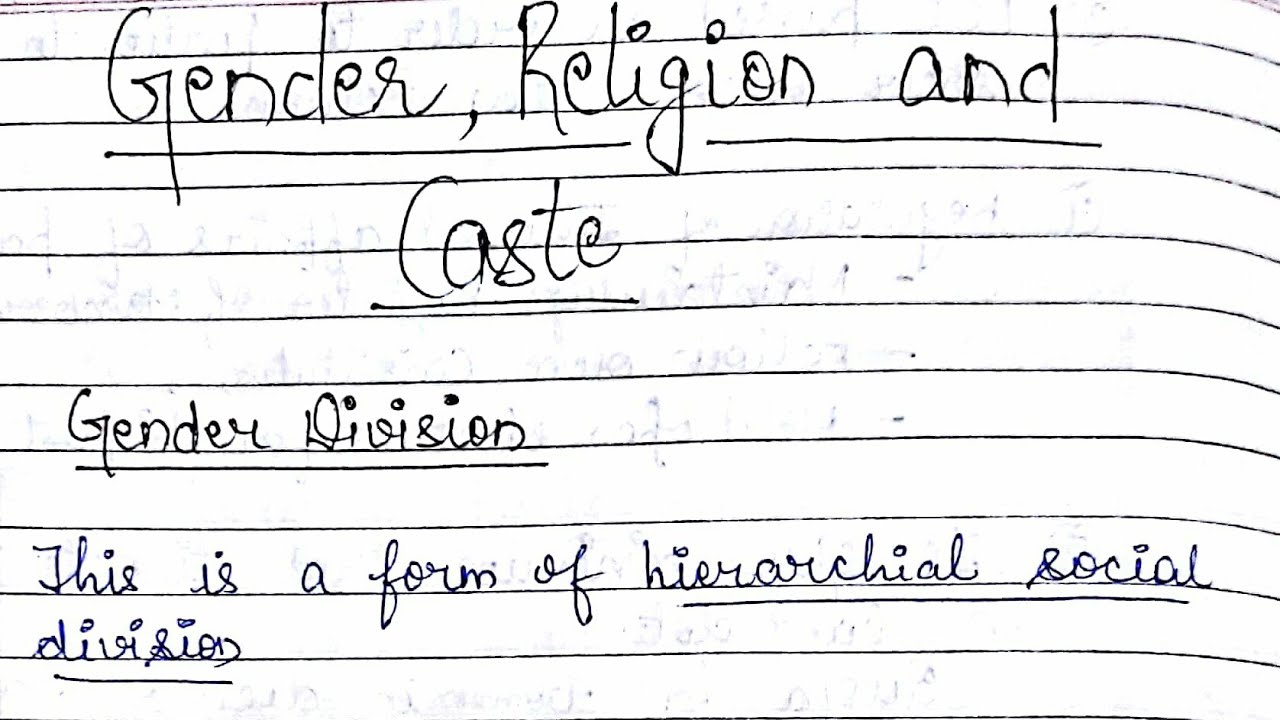 Gender, Religion and
Caste
Gender Division
This is a form of hierarchial social
division